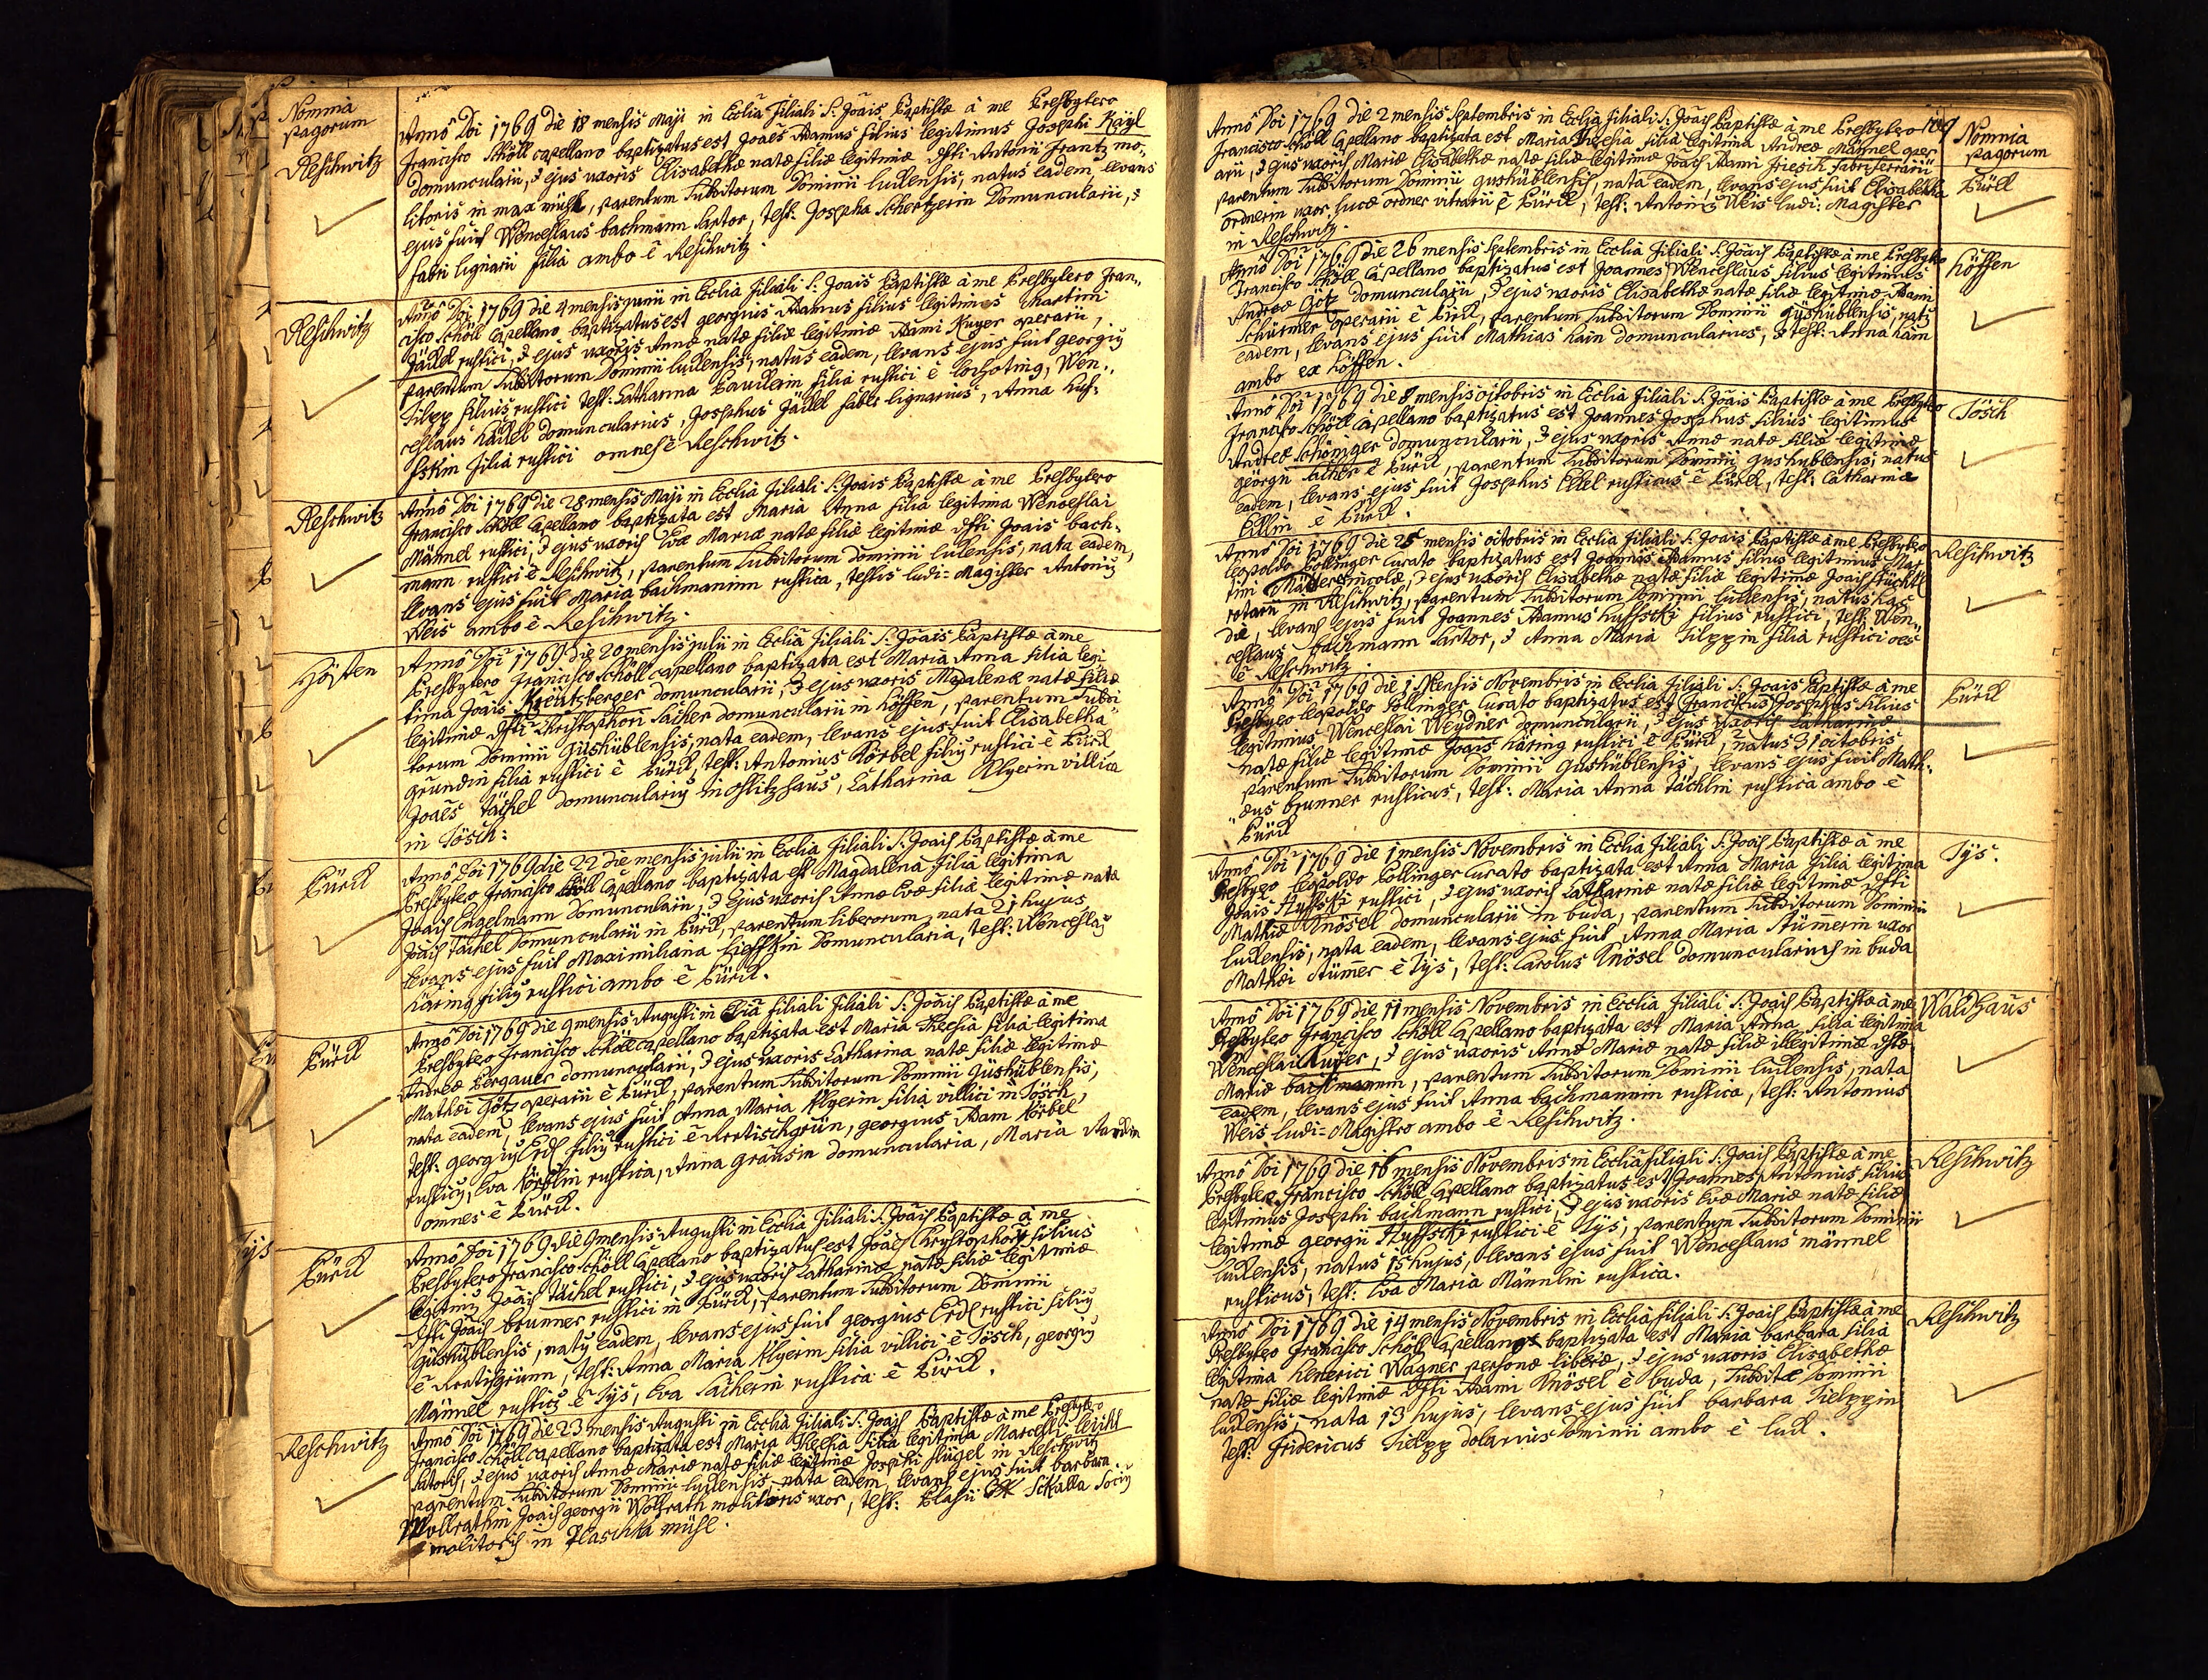 Nomnia
pagorum
Reschwitz
Anno Doi 1769 die 18 mensis Maji in Ecclia filiali S: Joais Baptistæ à me Presbytero
Francisco Schöll capellano baptizatus est Joaes Adamus filius legitimus Josephi Kayl
domuncularii, & ejus uxoris Elisabethæ natæ filiæ legitimæ dfti Antonii Frantz mo-
litoris in max mühl, parentum subditorum Dominii ludensis, natus eadem, levans
ejus fuit Wenceslaus bachmann sartor, test: Josepha Schertzerin Domuncularii, &
fabri lignarii filia ambo è Reschwitz.
Reschwitz
Anno Doi 1769 die 4 mensis junii in Ecclia filiali S: Joais Baptistæ à me Presbytero Fran-
cisco Schöll Capellano baptizatus est georgius Adamus filius legitimus Martini
Jäckel rustici, & ejus uxoris Annæ natæ filiæ legitimæ Adami Kuger operarii,
parentum subditorum Dominii ludensis, natus eadem, levans ejus fuit georgiu
Filipp filius rustici test: Catharina filia rustici è Wen-
ceslaus domuncularius, Josephus Jäckel faber lignarius, Anna Huf-
fskin filia rustici omnes è Reschwitz.
Reschwitz
Anno Doi 1769 die 28 mensis Maji in Ecclia filiali S: Joais Baptistæ à me Presbytero
Francisco Schöll Capellano baptizata est Maria Anna filia legitima Wenceslai
Männel rustici, & ejus uxoris Evæ Mariæ natæ filiæ legitimæ dfti Joais bach-
mann rustici è Reschwitz, parentum subditorum dominii ludensis, nata eadem,
levans ejus fuit Maria bachmannin rustica, testis ludi-Magister Antoniu
Weis ambo è Reschwitz.
Höffen
Anno Doi 1769 die 20 mensis julii in Ecclia filiali S: Joais Baptistæ à me
Presbytero Francisco Schöll capellano baptizata est Maria Anna filia legi
tima Joais Kreutzberger domuncularii, & ejus uxoris Magdalenæ natæ filiæ
legitimæ dfti Christophori Sacher domuncularii in Höffen, parentum subdi
torum Dominii gushüblensis, nata eadem, levans ejus fuit Elisabetha
grundin filia rustici è Pürck, test: Antonius Körbel filiu rustici è Pürck
Joaes Täschel domunculariu in Flitzhaus, Catharina Klyerin villica
in Tösch:
Pürck
Anno Doi 1769 die 22 die mensis julii in Ecclia filiali S: Joais Baptistæ à me
Presbytero Francisco Schöll Capellano baptizata est Magdalena filia legitima
Joais Engelmann Domuncularii, & ejus uxoris Annæ Evæ filiæ legitimæ natæ
Joais Täschel Domuncularii in Pürck, parentum liberorum, nata 21 hujus,
levans ejus fuit Maximiliana Domuncularia, test: Wenceslau
Häring filiu rustici ambo è Pürck.
Pürck
Anno Doi 1769 die 9 mensis Augusti in Eclia filiali filiali S: Joais Baptistæ à me
Presbytero Francisco Schöll capellano baptizata est Maria Theresia filia legitima
Andreæ Pergauer domuncularii, & ejus uxoris Catharina natæ filiæ legitimæ
Mathæi Götz operarii è Pürck, parentum subditorum Dominii gushüblensis,
nata eadem, levans ejus fuit Anna Maria Klyerin filia villici in Tösch,
test: georgiu Erdl filiu rustici è Kretischgrün, georgius Adam Körbel
rusticu, Eva Körblin rustica, Anna grausin domuncularia, Maria
omnes è Pürck.
Pürck
Anno Doi 1769 die 9 mensis Augusti in Ecclia filiali S: Joais Baptistæ à me
Presbytero Francisco Schöll Capellano baptizatus est Joaes Chrystophoru filius
legitimu Joais Täschel rustici, & ejus uxoris Catharinæ natæ filiæ legitimæ
dfti Joais brunner rustici in Pürck, parentum subditorum Dominii
gushüblensis, natu eadem, levans ejus fuit georgius Erdl rustici filiu
è Kretischgrün, test: Anna Maria Klyerin filia villici è Tösch, georgiu
Männel rusticu è Tys, Eva Sacherin rustica è Pürck.
Reschwitz
Anno Doi 1769 die 23 mensis Augusti in Ecclia filiali S: Joais Baptistæ à me Presbytero
Francisco Schöll Capellano baptizata est Maria Theresia filia legitima Marcelli leicht
Satoris, & ejus uxoris Annæ Mariæ natæ filiæ legitimæ Josephi flügel in Reschwitz
parentum subditorum Dominii ludensis, nata eadem, levans ejus fuit barbara
Wollrathin Joais georgii Wollrath molitoris uxor, test: Blasii Skalla Sociu
molitoris in Plaschka mühl.
109
Nomnia
pagorum
Pürck
Anno Doi 1769 die 2 mensis Septembris in Ecclia filiali S: Joais Baptistæ à me Presbytero
Francisco Schöll Capellano baptizata est Maria Theresia filia legitima Andreæ Männel oper
arii, & ejus uxoris Mariæ Elisabethæ natæ filiæ legitimæ Joais Adami Friesch fabri ferrarii
parentum subditorum Dominii gushüblensis, nata eadem, levans ejus fuit Elisabetha
ordnerin uxor lucæ ordner vitrarii è Pürck, test: Antoniu Weis ludi: Magister
in Reschwitz.
Höffen
Anno Doi 1769 die 26 mensis Septembris in Ecclia filiali S: Joais Baptistæ à me Presbytero
Francisco Schöll Capellano baptizatus est Joannes Wenceslaus filius legitimus
Andreæ Götz domuncularii, & ejus uxoris Elisabethæ natæ filiæ legitimæ Adami
Schürmer operarii è Pürck, parentum subditorum Dominii gyshüblensis, natu
eadem, levans ejus fuit Mathias Hain domuncularius, & test: Anna Hain
ambo ex Höffen.
Tösch
Anno Doi 1769 die 8 mensis octobris in Ecclia filiali S: Joais Baptistæ à me Presbytero
Francisco Schöll Capellano baptizatus est Joannes Josephus filius legitimus
Andreæ Schöniger domuncularii, & ejus uxoris Annæ natæ filiæ legitimæ
georgii Sacher è Pürck, parentum subditorum Dominii gushüblensis, natus
eadem, levans ejus fuit Josephus Erdl rusticus è Pürck, test: Catharina
è Pürck.
Reschwitz
Anno Doi 1769 die 25 mensis octobris in Ecclia filiali S: Joais Baptistæ à me Presbytero
leopoldo Pollinger curato baptizatus est Joannes Adamus filius legitimus Mar
tini Mader incolæ, & ejus uxoris Elisabethæ natæ filiæ legitimæ Joais Stückl
rotarii in Reschwitz, parentum subditorum Dominii ludensis, natus hac
die, levans ejus fuit Joannes Adamus Huffski filius rustici, test: Wen-
ceslaus bachmann Sartor, & Anna Maria Filppin filia rustici oes
è Reschwitz.
Pürck
Anno Doi 1769 die 1 Mensis Novembris in Ecclia filiali S: Joais Baptistæ à me
Presbytero leopoldo Pollinger Curato baptizatus est Franciscus Josephus filius
legitimus Wenceslai Weydner domuncularii, & ejus uxoris Catharinæ
natæ filiæ legitimæ Joais Häring rustici è Pürck, natus 31 octobris
parentum subditorum Dominii gushüblensis, levans ejus fuit Math-
æus brunner rusticus, test: Maria Anna Täschlin rustica ambo è
Pürck
Tys.
Anno Doi 1769 die 1 mensis Novembris in Ecclia filiali S: Joais Baptistæ à me
Presbytero leopoldo Pollinger Curato baptizata est Anna Maria filia legitima
Joais Huffski rustici, & ejus uxoris Catharinæ natæ filiæ legitimæ dfti
Mathiæ Knösel domuncularii in buda, parentum subditorum Dominii
ludensis, nata eadem, levans ejus fuit Anna Maria Stümerin uxor
Mathæi Stümer è Tys, test: Carolus Knösel domunculariuus in buda
Waldhaus
Anno Doi 1769 die 11 mensis Novembris in Ecclia filiali S: Joais Baptistæ à me
Presbytero Francisco Schöll Capellano baptizata est Maria Anna filia legitima
Wenceslai Kuger, & ejus uxoris Annæ Mariæ natæ filiæ illegitimæ dftæ
Mariæ bachmannin, parentum subditorum Dominii ludensis, nata
eadem, levans ejus fuit Anna bachmannin rustica, test: Antonius
Weis ludi-Magistro ambo è Reschwitz.
Reschwitz
Anno Doi 1769 die 16 mensis Novembris in Ecclia filiali S: Joais Baptistæ à me
Presbytero Francisco Schöll Capellano baptizatus est Joannes Antonius filius
legitimus Josephi bachmann rustici, & ejus uxoris Evæ Mariæ natæ filiæ
legitimæ georgii Huffski rustici è Tys, parentum subditorum Dominii
ludensis, natus 15 hujus, levans ejus fuit Wenceslaus männel
rusticus, test: Eva Maria Männlin rustica.
Reschwitz
Anno Doi 1769 die 14 mensis Novembris in Ecclia filiali S: Joais Baptistæ à me
Presbytero Francisco Schöll Capellano baptizata est Maria barbara filia
legitima Henerici Wagner personæ liberæ, & ejus uxoris Elisabethæ
natæ filiæ legitimæ dfti Adami Knösel è buda, subditæ Dominii
ludensis, nata 13 hujus, levans ejus fuit barbara Fielppin
test: Fridericus Fielpp dolarius Dominii ambo è lud.